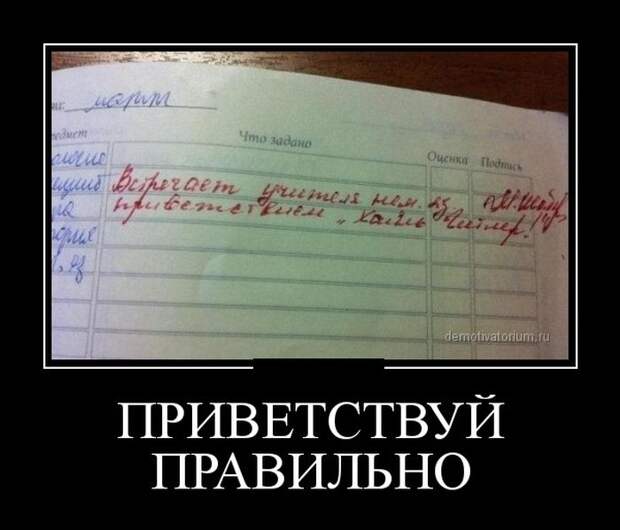 март
Что задано
Оценка Подпись
Встречает учителя нем. яз
приветствием „Хайль Гитлер!"
demotivatorium.ru
ПРИВЕТСТВУЙ
ПРАВИЛЬНО